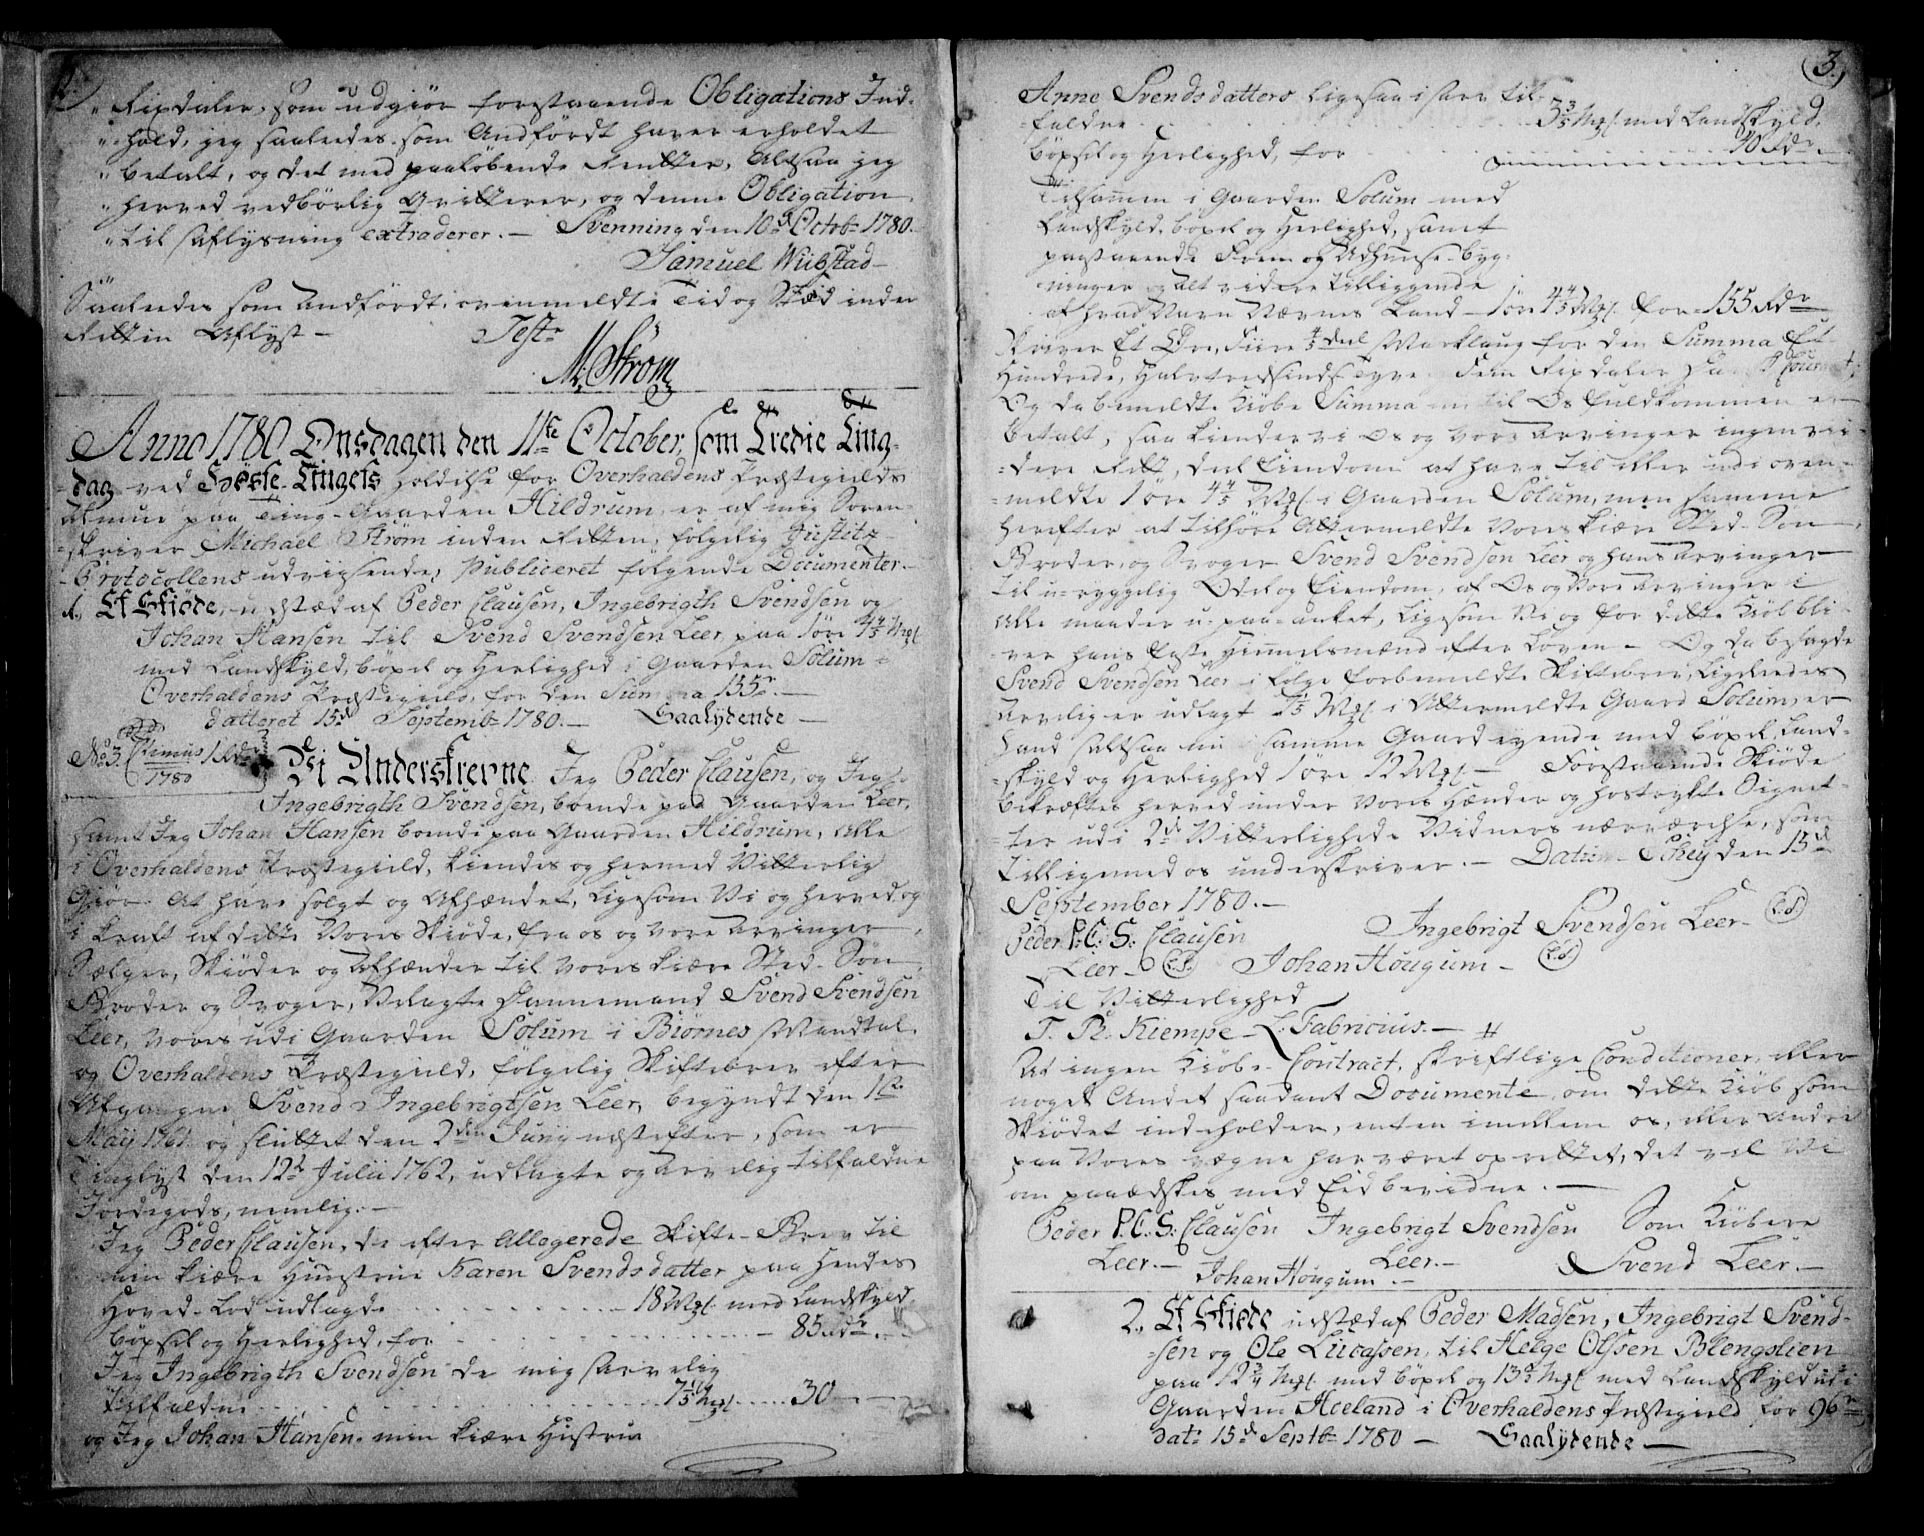 2.
„ Rixdaler, som udgiør forestaaende Obligations Ind-
„ hold, jeg saaledes som Andført haver erholdet
„ betalt, og det med paaløbende Renter, Altsaa jeg
„ herved vedbørlig Qvitterer, og denne Obligation
„ til aflysning extraderer. — Svenning den 10de Octobr 1780.
Samuel Wibstad
Saaledes som Andført ovenmeldte Tid og Stæd inden
Retten Aflyst — Testr
M: Strøm
Anno 1780 Onsdagen den 11te October, som Tredie Ting-
dag ved Høste-Tingets holdelse for Overhaldens Præstegields
Almue paa Ting-Gaarden Hildrum, er af mig Soren-
skriver Michael Strøm inden Retten, følgelig Justitz
Protocollens udviisende, publiceret følgende Documenter. —
1., Et Skiøde, udstæd af Peder Clausen, Ingebrigth Svendsen og
Johan Hansen til Svend Svendsen Leer paa 1 øre 4 4/5 Mkl
med Landskyld, bøxel og Herlighed i Gaarden Solum i
Overhaldens Præstegield, for den Summa 155r. —
datteret 15d Septembr 1780. — Saalydende —
No 3. 1 Rdr
1780
Vi Underskrevne Jeg Peder Clausen, og Jeg
Ingebrigth Svendsen, boende paa Gaarden Leer,
samt Jeg Johan Hansen boende paa Gaarden Hildrum, Alle
i Overhaldens Præstegield, kiendes og hermed Vitterlig
Giør. At have solgt og Afhændet, Ligesom Vi og herved og
i kraft af dette Vores Skiøde, fra os og vore Arvinger,
Sælger, Skiøder og Afhænder til vores kiære Sted-Søn
Broder og Svoger, Velagte Dannemand Svend Svendsen
Leer, vores udi Gaarden Solum i Biørnes Mandtal
og Overhaldens Præstegield, følgelig Skiftebrev efter
Afgangne Svend Ingebrigtsen Leer, begyndt den 1ste
May 1761 og sluttet den 2den Juny næstefter, som er
Tinglyst den 12te Julii 1762, udlagte og Arvelig tilfaldne
Jordegods, nemlig: —
Jeg Peder Clausen, de efter Allegerede Skifte-Brev til
min kiære Hustrue Karen Svendsdatter paa Hendes
Hoved-Lod udlagde . . . . . 18 Mkl. med Landskyld
bøxsel og Herlighed, for . . . . . 85 Rdr.
Jeg Ingebrigth Svendsen de mig Arvelig
tilfaldne . . . . . 7 1/5 Mkl . . . . . 30 —
og Jeg Johan Hansen, min kiære Hustrue
3.
Anne Svendsdatters ligesaa i Arv til-
faldne . . . . . 3 3/5 Mkl. med Landskyld,
bøxsel og Herlighed, for . . . . . 40 Rdr
Tilsammen i Gaarden Solum med
Landskyld, bøxel og Herlighed, samt
paastaaende Frem og Udhuuse-byg-
ninger og alt videre tilliggende
af hvad Navn Nævnes Kand — 1 øre 4 4/5 Mkl. for — 155 Rdr
skriver Et Øre, Fiire 4/5 deel Marklaug for den Summa Et
Hundrede, Halvtredsindstyve Fem Rixdaler
Og da bemeldte Kiøbe Summa nu til Os fuldkommen er
betalt, saa kiender vi os og Vore Arvinger ingen vii-
dere Rett, deel Eiendom at have til eller udi oven-
meldte 1 øre 4 4/5 Mkl. i Gaarden Solum, men samme
herefter at tilhøre Altermeldte Vores kiære Sted-Søn,
Broder, og Svoger Svend Svendsen Leer og hans Arvinger
til u-ryggelig Odel og Eiendom, af Os og Vore Arvinger i
Alle maader u-paa-anket, Ligesom Vi og for dette Kiøb bli-
ver hans faste Himmelsmænd efter Loven — Og da besagde
Svend Svendsen Leer i følge forbemeldte Skiftebrev, Ligeledes
Arvelig er udlagt 7 1/5 Mkl. i Altermeldte Gaard Solum, er
Hand altsaa nu i samme Gaard eyende med bøxel, Land-
skyld og Herlighed 1 øre 12 Mkl. — Forestaaende Skiøde
bekræftes herved under Vores Hænder og hostrykte Signet-
ter udi 2de Vitterligheds Vidners nærværelse, som
tilligemed os underskriver. — Datum Schey den 15d
September 1780. —
Peder P: C: S: Clausen Ingebrigt Svendsen Leer — (L.S.)
Leer — (L.S.) Johan Hougum — (L.S.)
Til Vitterlighed
T. R. Kiempe — L: Fabricius. —
At ingen Kiøbe-Contract, skriftlige Conditioner, eller
noget Andet saadant Documente, om dette Kiøb som
Skiødet indeholder, enten imellem os, eller Andre
paa Vores vegne har været oprettet, det vel Vi
om paaædskes med Eed bevidne. —
Peder P. C. S: Clausen Ingebrigt Svendsen Som Kiøbere
Leer. — Leer. — Svend Leer. —
Johan Hougum. —
2., Et Skiøde udstæd af Peder Madsen, Ingebrigt Svend-
sen og Ole Lucassen, til Helge Olssen Blengslien
paa 12 3/4 Mkl. med bøxel og 13 Mkl med Landskyld udi
Gaarden Aceland i Overhaldens Præstegield for 96r
dat: 15d Septbr 1780 — Saalydende —